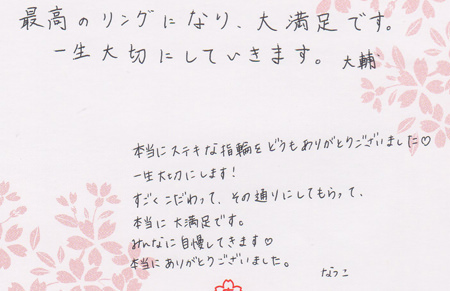 最高のリングになり、大満足です。
一生大切にしていきます。 大輔
本当にステキな指輪をどうもありがとうございました♡
一生大切にします！
すごくこだわって、その通りにしてもらって、
本当に大満足です。
みんなに自慢してきます♡
本当にありがとうございました。
なつこ